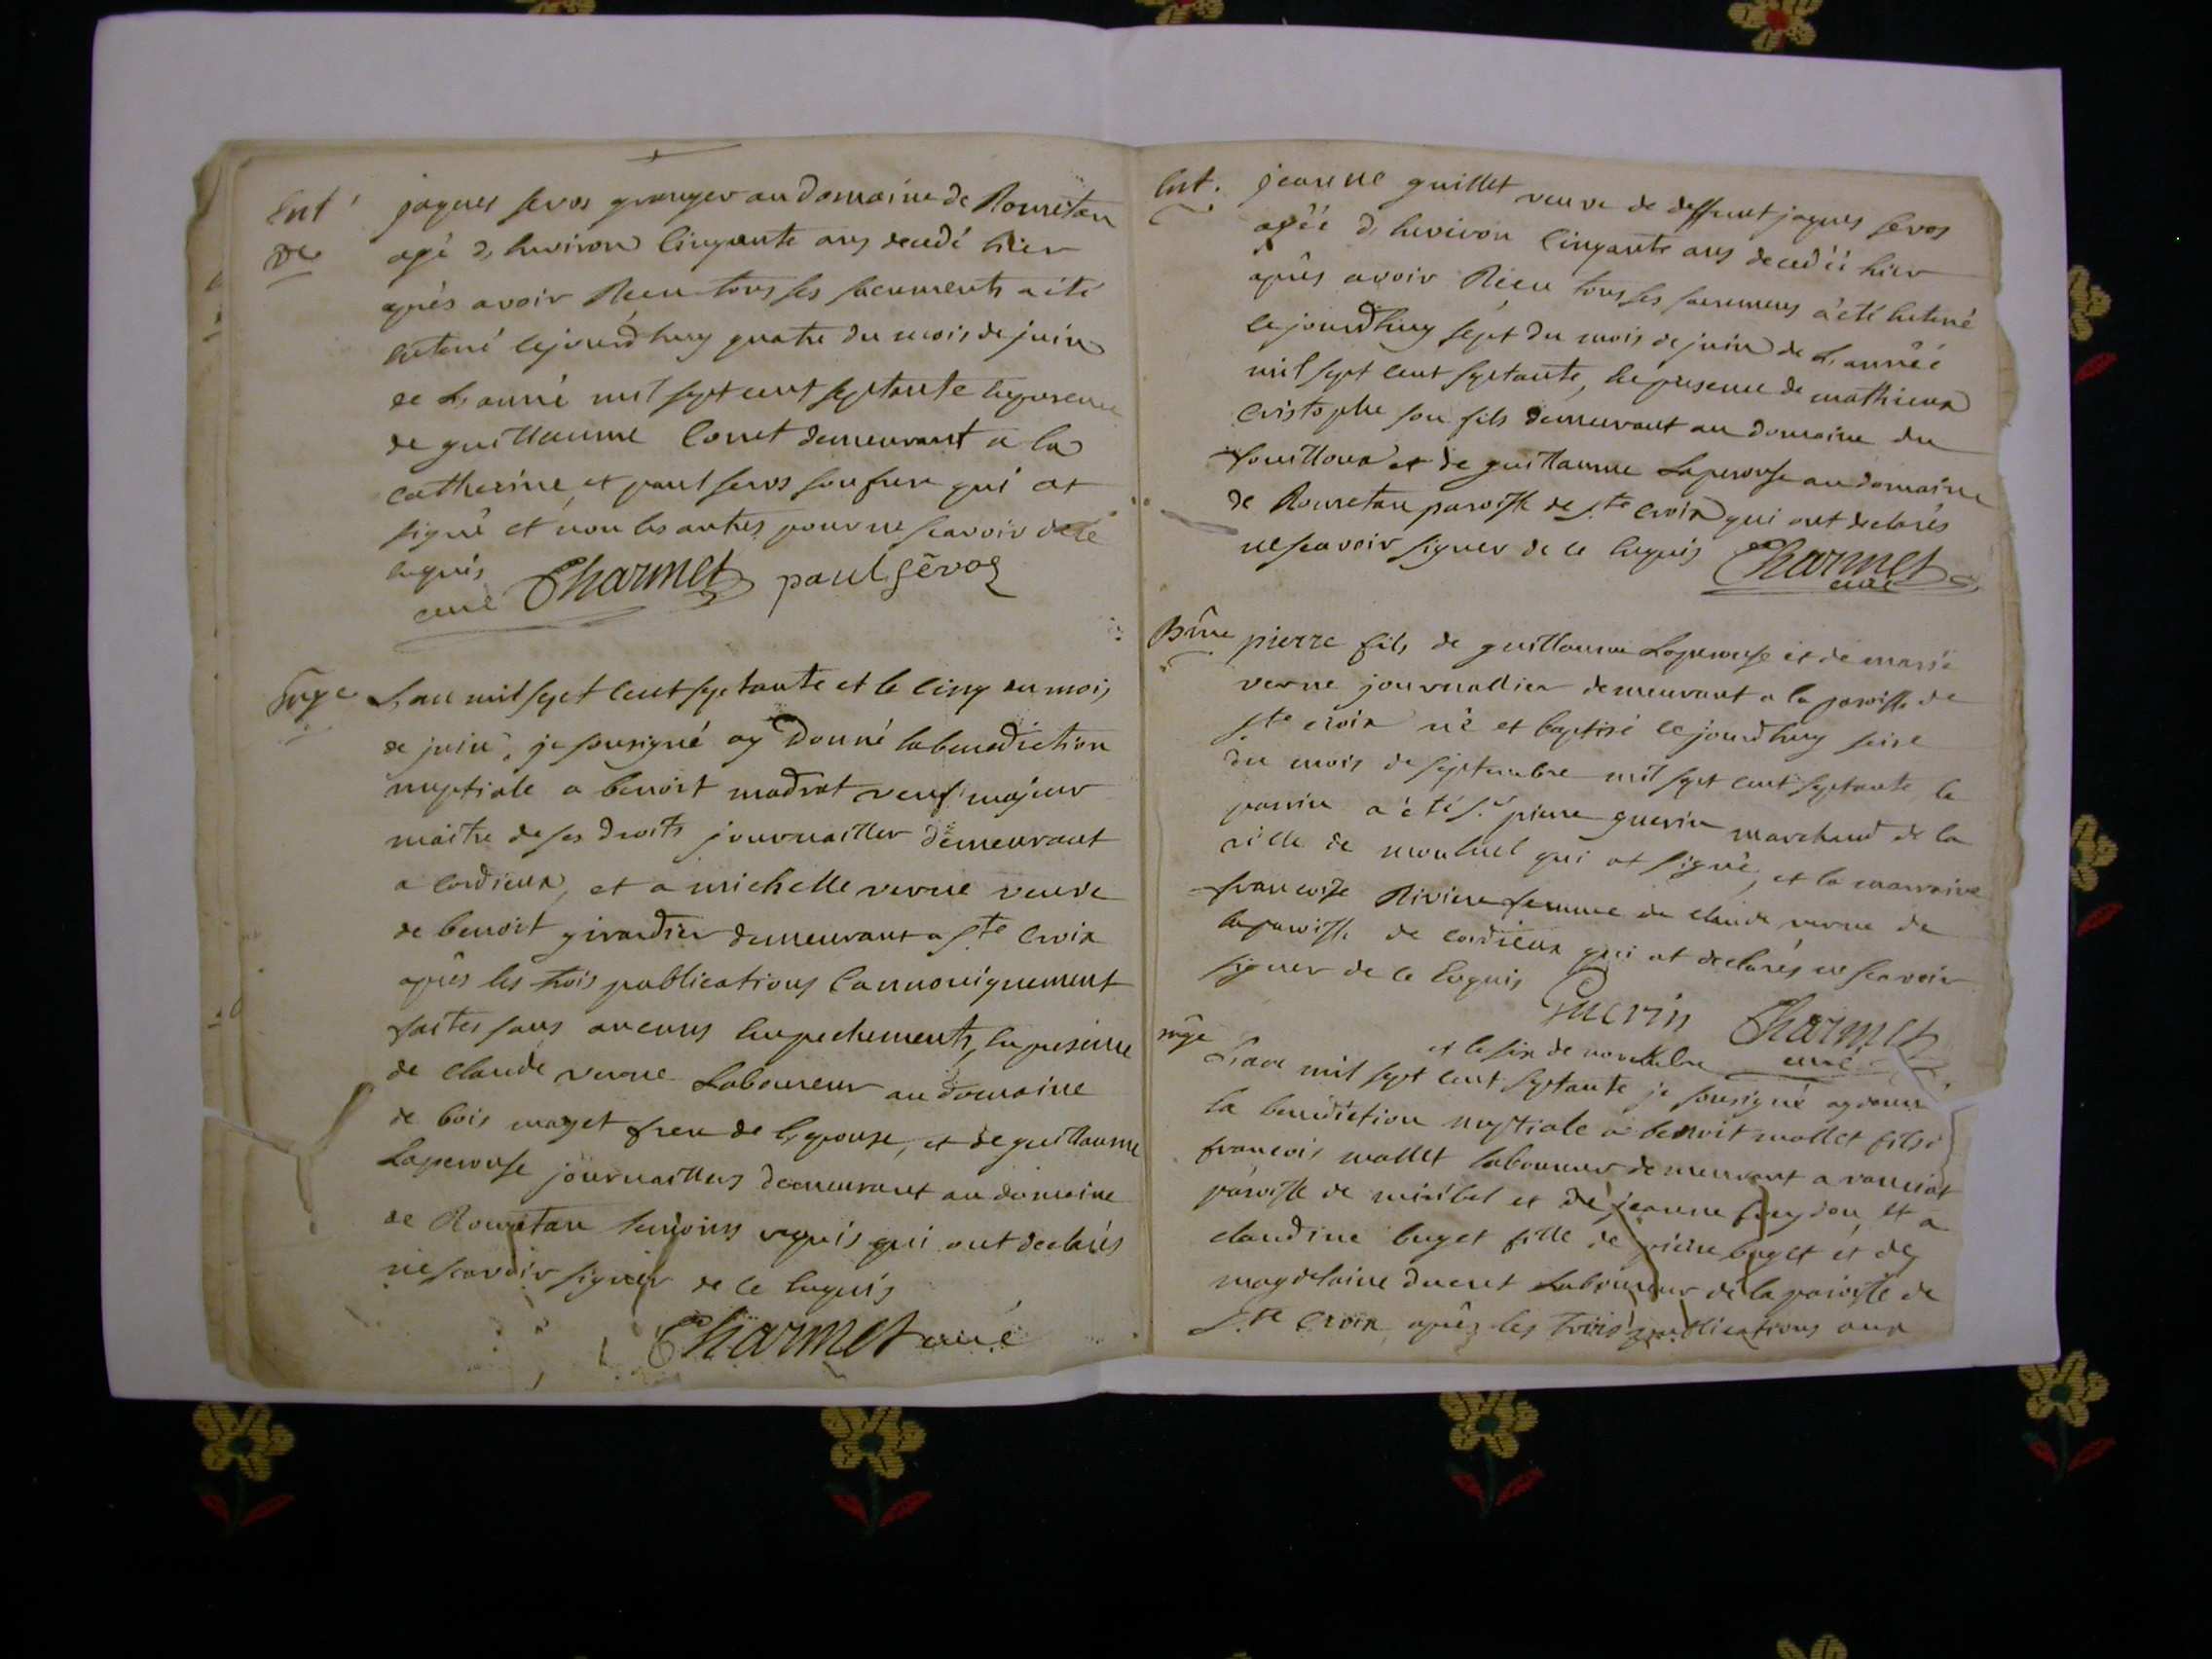 Ent
De
jaques sevos granger au domaine de Rouretan
agé d, henviron cinquante ans decedé hier
après avoir Recu tous ses sacrements a été
enterré cejourd'huy quatre du mois de juin
de L, anné mil sept cent septante en presence
de guillaume Conet demeurant a la
catherine et paul sevos son frere qui at
signé et non les autres pour ne scavoir de ce
enquis
curé Charmet paul sevos
L, an mil sept cent septante et le cinq du mois
de juin, je sousigné ay Donné la benediction
nuptiale a benoit madrat veuf majeur
maitre de ses droits journaillier demeurant
a cordieux, et a michelle verne veuve
de benoit girardier demeurant a Ste Croix
après les trois publications
faites sans aucuns empechements, en presence
de claude verne Laboureur au domaine
de bois maget frere de l, epouse, et de guillaume
Laperouse journailliers demeurant au domaine
de Rouretan temoins requis qui ont declarés
ne scavoir signer de ce enquis
Charmet curé
Ent.
jeanne guillet veuve de deffunt jaques sevos
agéé d, henviron cinquante ans decedéé hier
après avoir Recu tous ses sacremens a été enterré
ce jourd'huy sept du mois de juin de L, annéé
mil sept cent septante, en presence de mathieu
cristophe son fils demeurant au domaine du
fouilloux et de guillaume Laperouse au domaine
de Rouretan paroisse de Ste croix qui ont declarés
ne scavoir signer de ce enquis Charmet
curé
Bme pierre fils de guillaume Laperouse et de marie
verne journallier demeurant a la paroisse de
Ste croix né et baptisé cejourd'huy seise
du mois de septembre mil sept cent septante le
parrin a été Sr pierre guerin marchand de la
ville de montluel qui at signé, et la marraine
francoise Riviere femme de claude verne de
la paroisse de cordieux qui at declarés ne scavoir
signer de ce Enquis
Guerin Charmet
curé
mge
et le six de novembre
L'an mil sept cent septante je sousigné ay donné
la benediction nuptiale a benoit mallet fils d
francois mallet laboureur demeurant a vanciat
paroisse de miribel et de jeanne et a
claudine buget fille de pierre buget et de
magdelaine ducret Laboureur de la paroisse de
Ste Croix après les trois publications aux